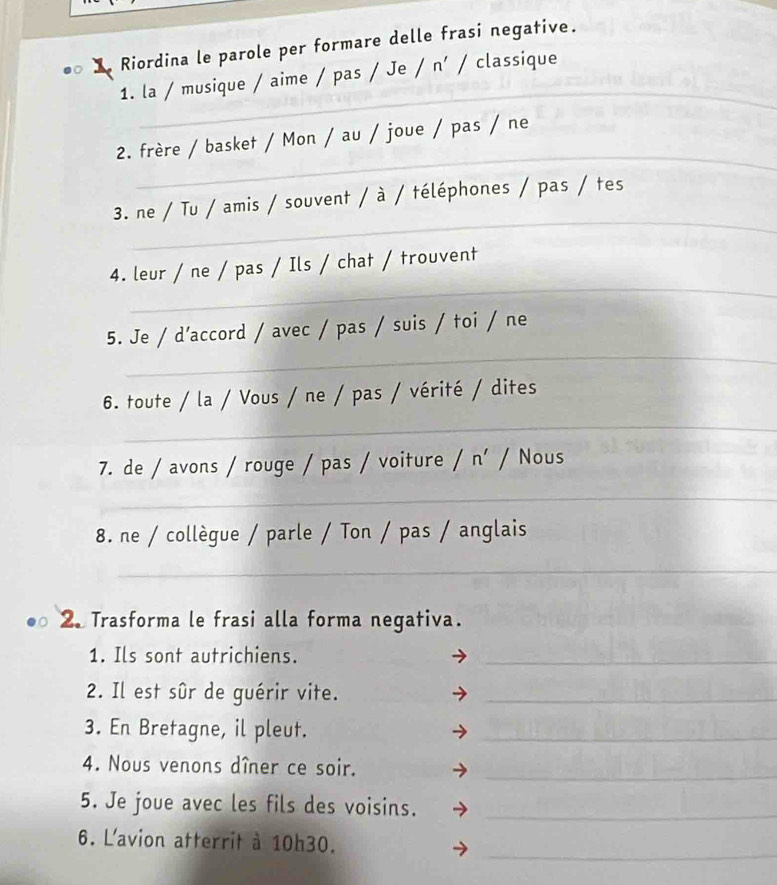 1. Riordina le parole per formare delle frasi negative.
1. la / musique / aime / pas / Je / n' / classique
2. frère / basket / Mon / au / joue / pas / ne
3. ne / Tu / amis / souvent / à / téléphones / pas / tes
4. leur / ne / pas / Ils / chat / trouvent
5. Je / d'accord / avec / pas / suis / toi / ne
6. toute / la / Vous / ne / pas / vérité / dites
7. de / avons / rouge / pas / voiture / n' / Nous
8. ne / collègue / parle / Ton / pas / anglais
2. Trasforma le frasi alla forma negativa.
1. Ils sont autrichiens. →
2. Il est sûr de guérir vite. →
3. En Bretagne, il pleut. →
4. Nous venons dîner ce soir. →
5. Je joue avec les fils des voisins. →
6. L'avion atterrit à 10h30. →